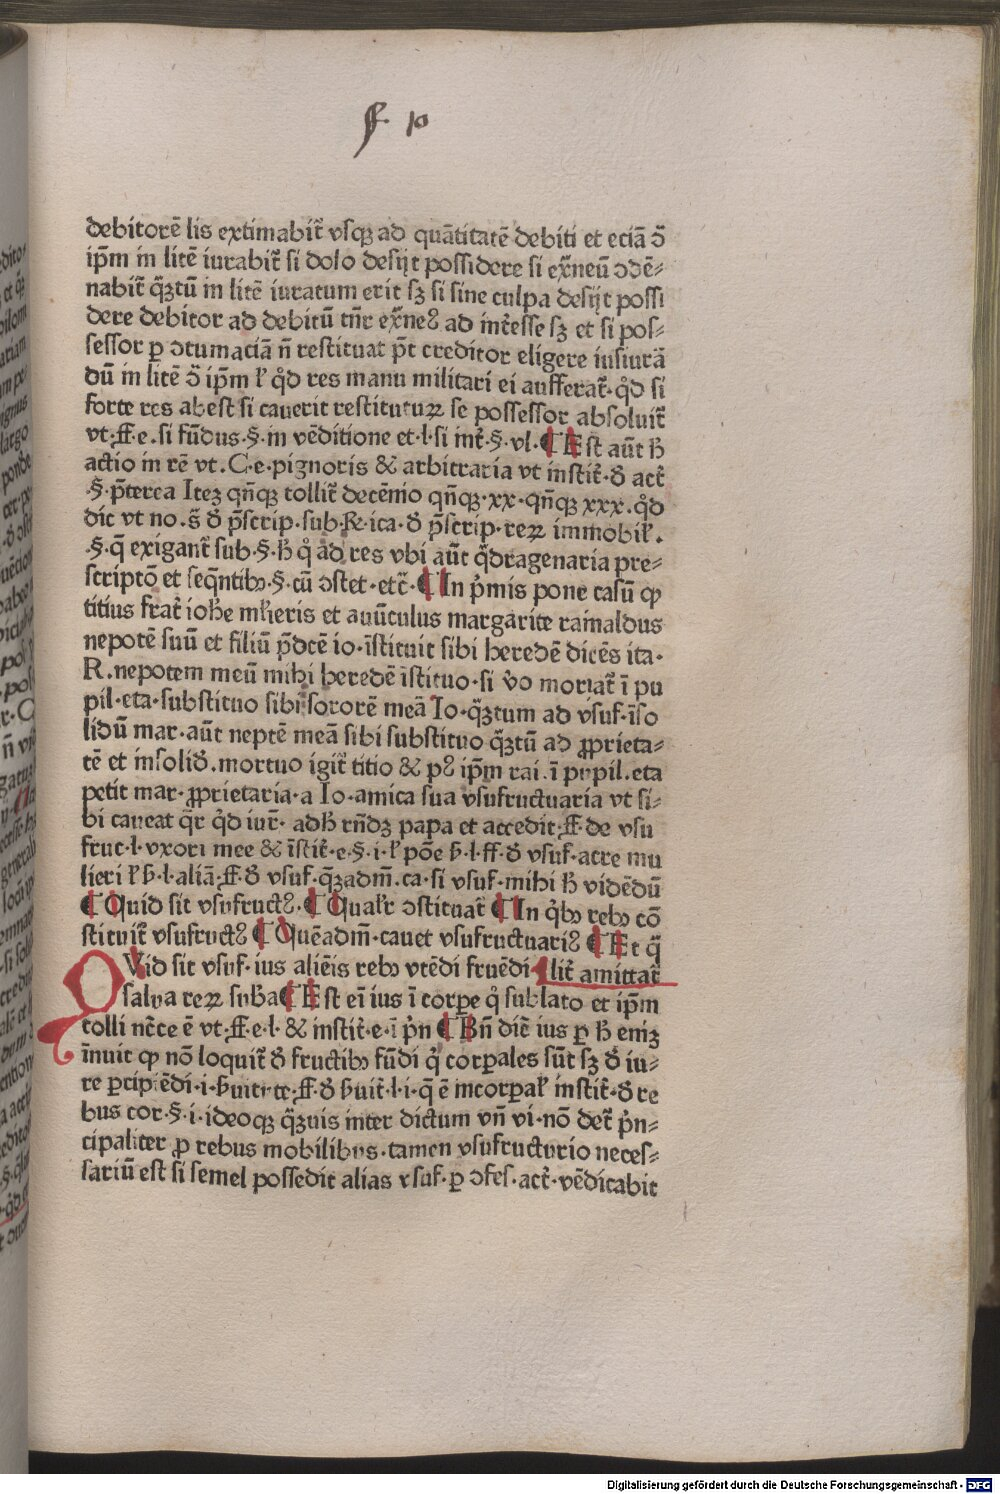 debitorē lis extimabit᷑ vsqꝫ ad quātitatē debiti et eciā ↄ̄
ip̄m in litē iurabit᷑ si dolo desijt possidere si ex̄neū ↄdē⸗
nabit᷑ q̄ꝫtū in litē iuratum erit sꝫ si sine culpa desijt possi
dere debitor ad debitū tn̄r ex̄neꝰ ad int̄esse sꝫ et si pos⸗
sessor ꝑ ↄtumaciā n̄ restituat p̄t creditor eligere iusiurā
dū in litē ↄ̄ ip̄m ł qd̓ res manu militari ei aufferat᷑·qd̓ si
forte res abest si cauerit restituturꝫ se possessor absoluit᷑
vt·ff·e.si fūdus·§·in vēditione et·l·si int᷑·§·vl·¶Est aūt h̄
actio in rē vt.C·e·pignoris & arbitraria vt instit᷑·d̓ act᷑
·§·p̄terea Iteꝫ qn̄qꝫ tollit᷑ decēnio qn̄qꝫ·xx·qn̄qꝫ xxx·qd̓
dic vt no·s̄ d̓ p̄scrip·sub·R·ica·d̓ p̄scrip·reꝝ immobił.
·§·q̄ exigant᷑ sub·§·h̄ q̊ ad res vbi aūt q̄dragenaria pre⸗
scriptō et seq̄ntibꝫ·§·cū ↄstet·etc̄·¶In p̓mis pone casū ꝙ
titius frat᷑ ioh̄e mł̓ieris et auūculus margarite rainaldus
nepotē suū et filiū p̄dcē io·īstituit sibi heredē dicēs ita·
R.nepotem meū mihi heredē īstituo·si v̊o moriat᷑ ī pu
pil·eta·substituo sibi sororē meā Io·q̄ꝫtum ad vsuf·īso
lidū mar·aūt neptē meā sibi substituo q̄ꝫtū ad ꝓprieta⸗
tē et insolid̓.mortuo igit᷑ titio & pꝰ ip̄m rai.ī pupil.eta
petit mar·ꝓprietaria·a Io·amica sua vsufructuaria vt si⸗
bi caueat q̄r qd̓ iur᷑·adh̄ rn̄dꝫ papa et accedit·ff·de vsu
fruc·l·vxori mee & īstit᷑·e·§·i·ł pōe h̄·l·ff·d̓ vsuf·acre mu
lieri ł h̄·l·aliā·ff·d̓ vsuf·q̄ꝫadm̄·ca·si vsuf·mihi h̄ vidēdū
¶Quid sit vsufructꝰ·¶Qualr̓ ↄstituat᷑ ¶In qͥbꝫ rebꝫ cō
stituit᷑ vsufructꝰ ¶Quēadm̄·cauet vsufructuariꝰ ¶Et q̄
QVid sit vsuf·ius aliēis rebꝫ vtēdi fruēdi lit᷑ amittat᷑
salua reꝝ sub̄a¶Est eī ius ī corpe q̊ sublato et ip̄m
tolli nc̄ce ē vt·ff·e·l·& instit᷑·e·ī p̓n ¶Bn̄ diē ius ꝑ h̄ enīꝫ
īnuit ꝙ nō loquit᷑ d̓ fructibꝫ fūdi qͥ corꝑales sūt sꝫ d̓ iu⸗
re ꝑcipiēdi·i·ꝑuitite·ff·d̓ ẜuit᷑·l·i·q̄ ē incorꝑał instit᷑·d̓ re
bus cor·§·i·ideoqꝫ q̄ꝫuis inter dictum vn̄ vi·nō det᷑ p̓n⸗
cipaliter ꝓ rebus mobilibus·tamen vsufructurio neces⸗
sariū est si semel possedit alias vsuf·ꝑ ↄfes·act᷑·vēdicabit
Digitalisierung gefördert durch die Deutsche Forschungsgemeinschaft - DFG